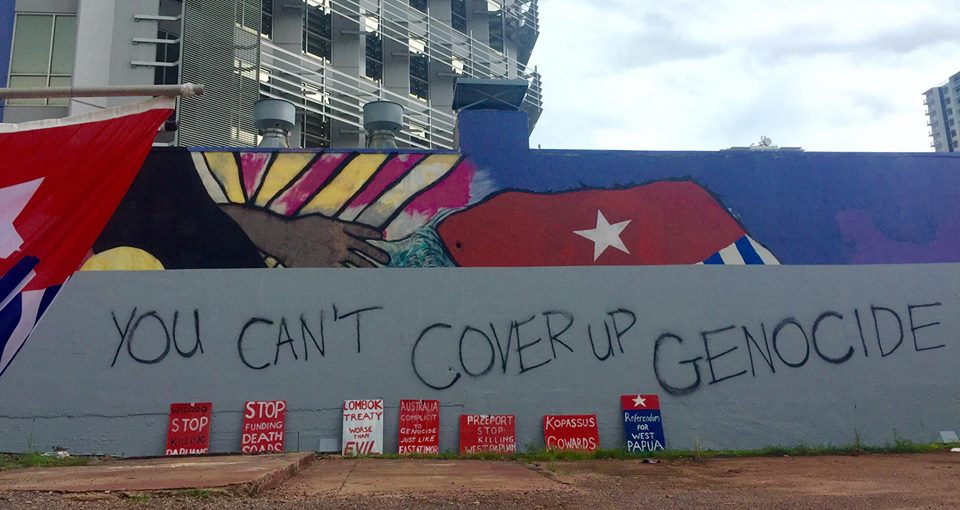 YOU CAN'T COVER UP GENOCIDE
WIDODO
STOP
KILLING
PAPUANS
STOP
FUNDING
DEATH
SQADS
LOMBOK
TREATY
WORSE
THAN
EVIL
AUSTRALIA
COMPLICIT
TO
GENOCIDE
JUST LIKE
EAST TIMOR
FREEPORT
STOP
KILLING
WEST PAPUANS
KOPASSUS
COWARDS
Referendum
FOR
WEST
PAPUA